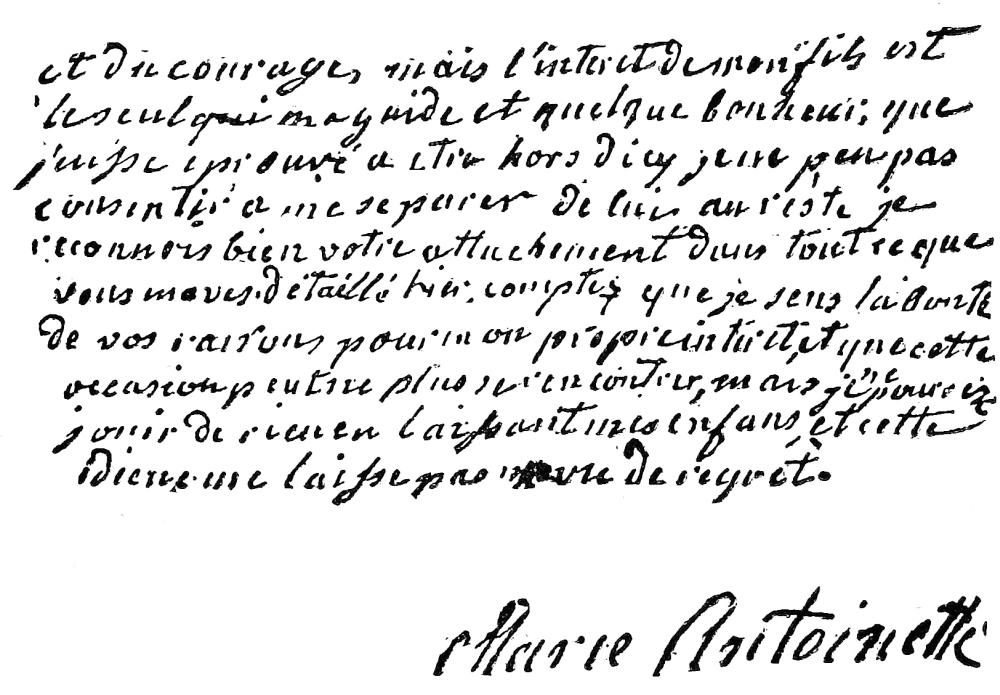 et du courage, mais l'interet de mon fils est
le seul qui me guide et quelque bonheur, que
j'eusse eprouvé a etre hors d'icy je ne peu pas
consentir a me separer de lui. au reste je
reconnois bien votre attachement dans tout ce que
vous maves détaillé hier. comptez que je sens la bonté
de vos raisons pour mon propre interest, et que cette
occasion peut ne plus se rencontrer, mais je ne pourois
jouir de rien en laissant mes enfans, et cette
idiene me laisse pas de regrèt.
Marie Antoinette